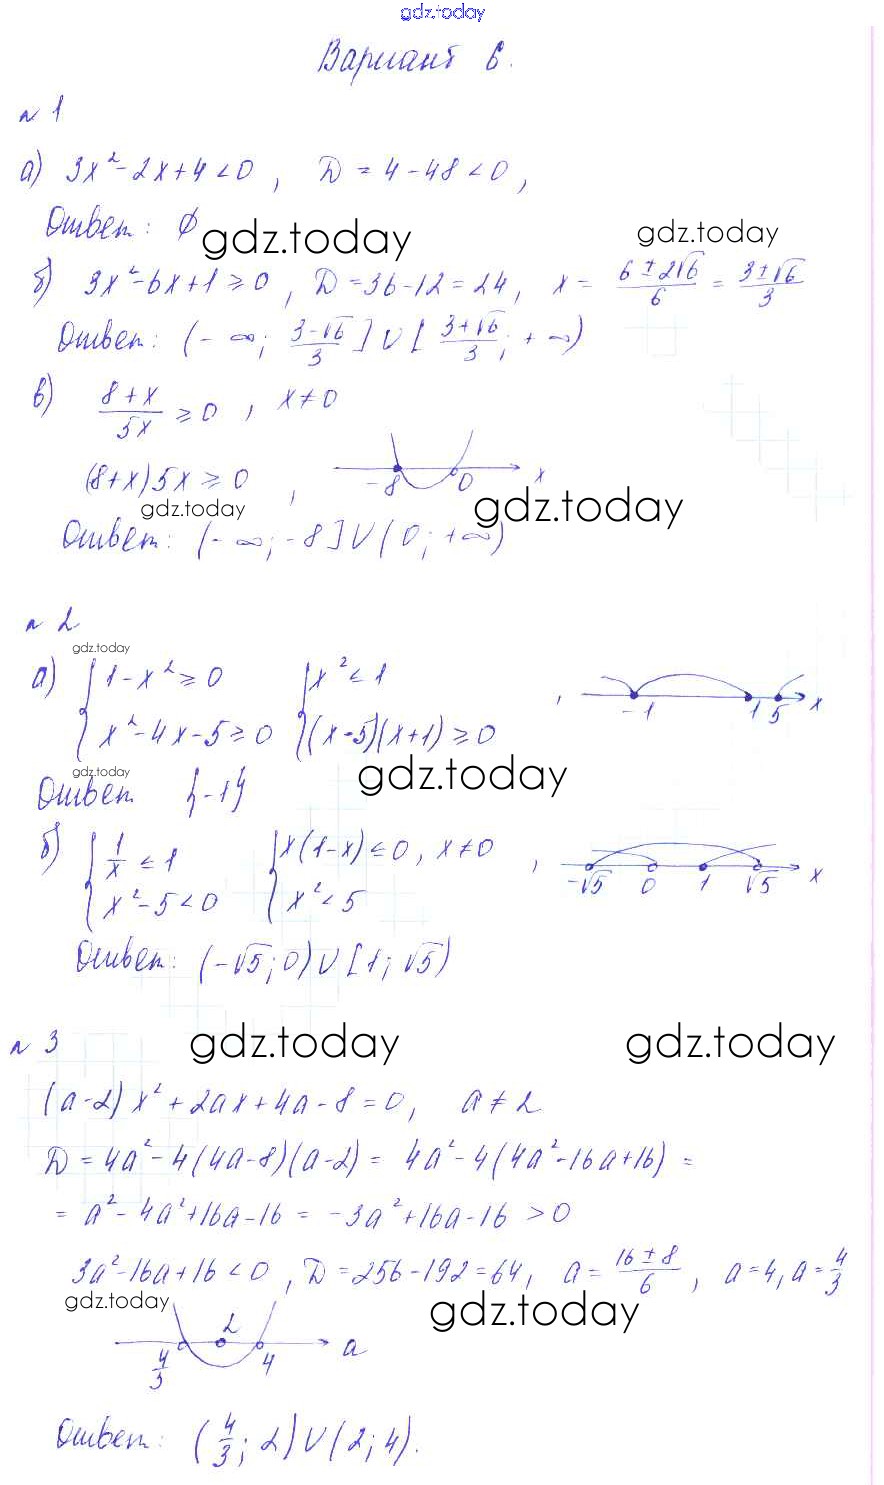 gdz.today
Вариант 6.
n 1
а) 3x² - 2x + 4 < 0, D = 4 - 48 < 0,
Ответ: ∅
gdz.today
gdz.today
б) 3x² - 6x + 1 ≥ 0, D = 36 - 12 = 24, x = (6 ± 2√6)/6 = (3 ± √6)/3
Ответ: (-∞; (3-√6)/3] ∪ [(3+√6)/3; +∞)
в) (8 + x)/5x ≥ 0, x ≠ 0
(8 + x) 5x ≥ 0, -8 0 x
gdz.today
gdz.today
Ответ: (-∞; -8] ∪ (0; +∞)
n 2
gdz.today
а) { 1 - x² ≥ 0 { x² ≤ 1
x² - 4x - 5 ≥ 0 (x - 5)(x + 1) ≥ 0, -1 1 5 x
gdz.today
gdz.today
Ответ {-1}
б) { 1/x ≤ 1 { x(1 - x) ≤ 0, x ≠ 0
x² - 5 < 0 x² < 5, -√5 0 1 √5 x
Ответ: (-√5; 0) ∪ [1; √5)
gdz.today
gdz.today
n 3
(a - 2) x² + 2ax + 4a - 8 = 0, a ≠ 2
D = 4a² - 4(4a - 8)(a - 2) = 4a² - 4(4a² - 16a + 16) =
= a² - 4a² + 16a - 16 = -3a² + 16a - 16 > 0
3a² - 16a + 16 < 0, D = 256 - 192 = 64, a = (16 ± 8)/6, a = 4, a = 4/3
gdz.today
gdz.today
4/3 2 4 a
Ответ: (4/3; 2) ∪ (2; 4).